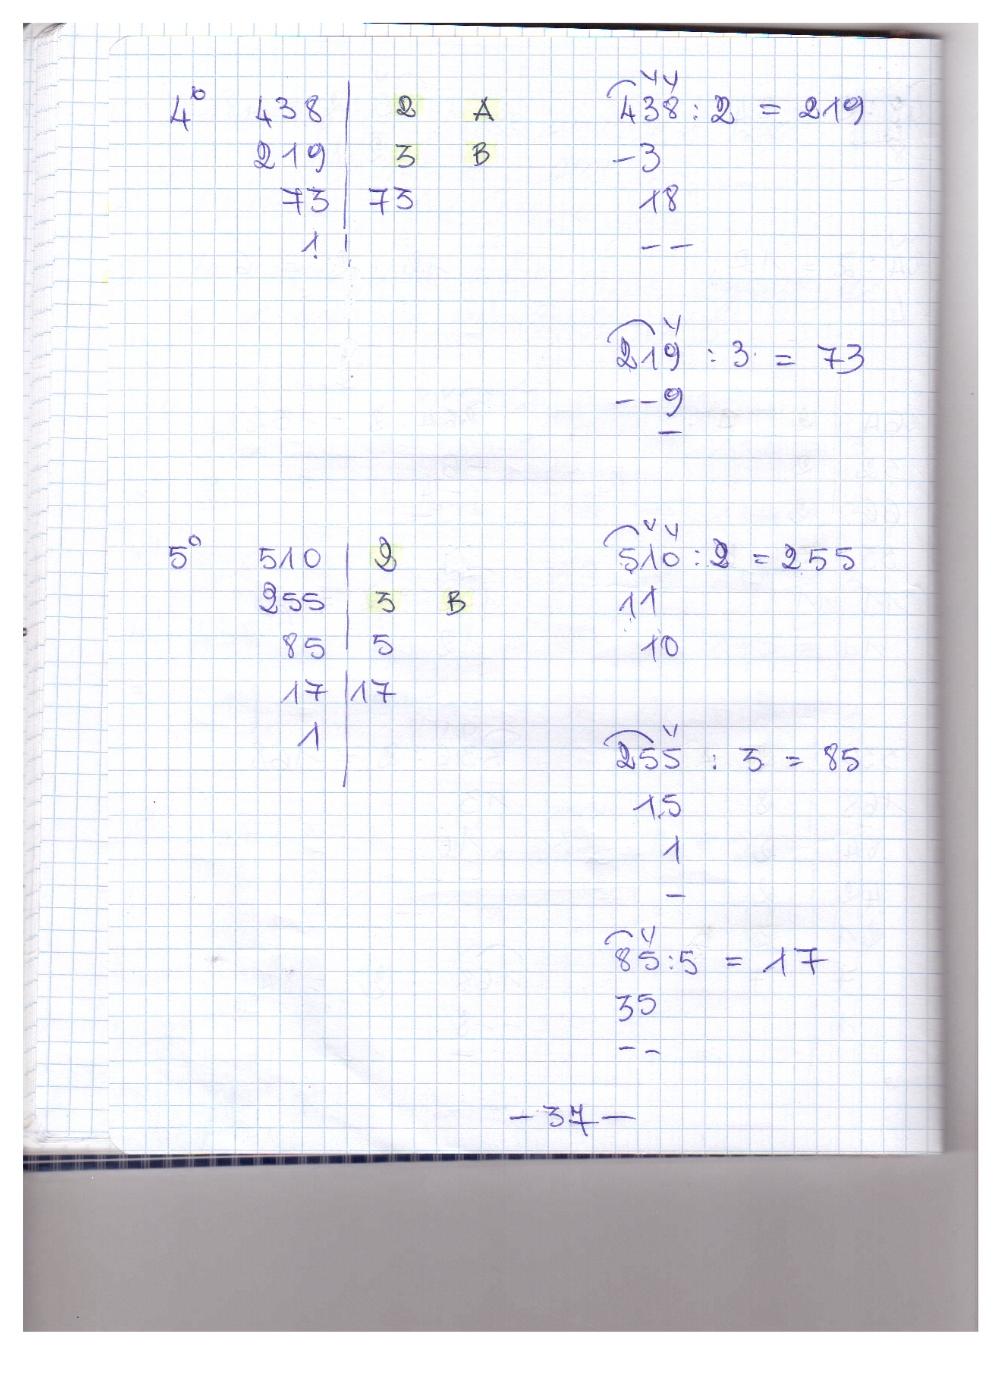 4° 438 | 2 A
219 | 3 B
73 | 73
1 |
438 : 2 = 219
-3
18
--
219 : 3 = 73
--9
-
5° 510 | 2
255 | 3 B
85 | 5
17 | 17
1 |
510 : 2 = 255
11
10
255 : 3 = 85
15
1
-
85 : 5 = 17
35
--
- 37 -